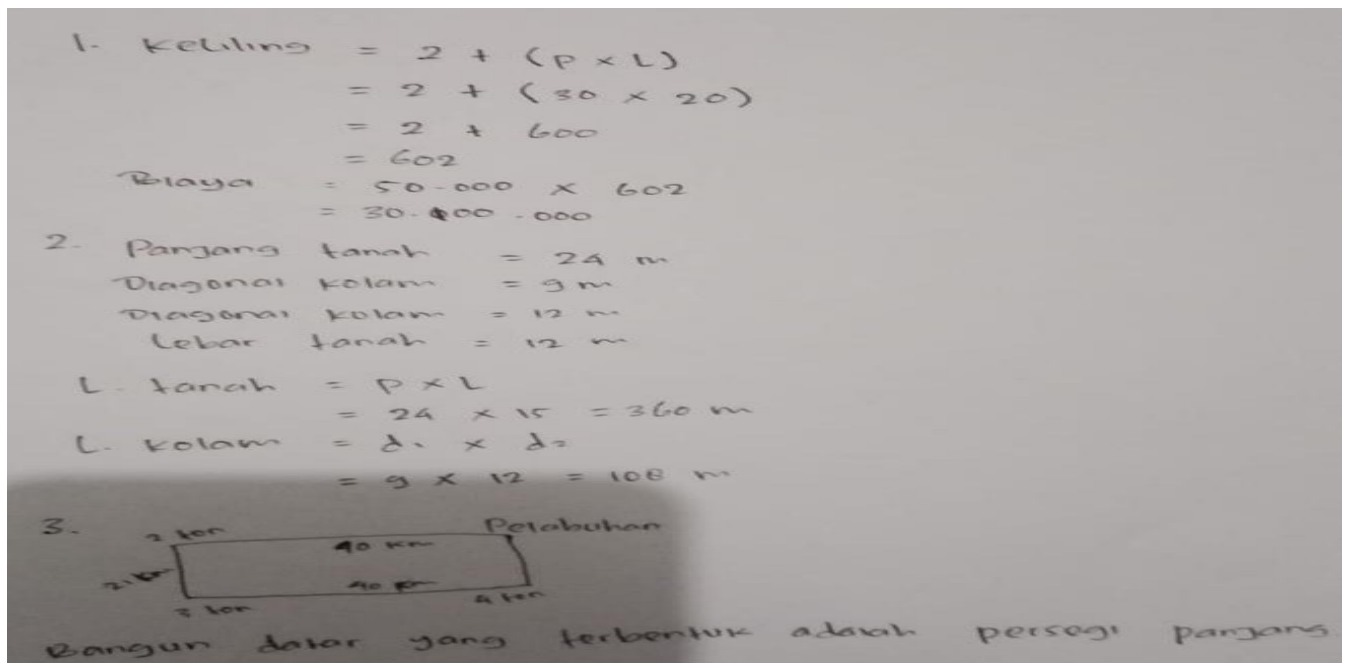 1. Keliling = 2 + (P x L)
= 2 + (30 x 20)
= 2 + 600
= 602
Biaya = 50.000 x 602
= 30.100.000
2. Panjang tanah = 24 m
Diagonal kolam = 9 m
Diagonal kolam = 12 m
Lebar tanah = 12 m
L. tanah = P x L
= 24 x 15 = 360 m
L. kolam = d1 x d2
= 9 x 12 = 108 m
3. 2 ton Pelabuhan
40 km
40 km
3 ton 4 ton
Bangun datar yang terbentuk adalah persegi panjang